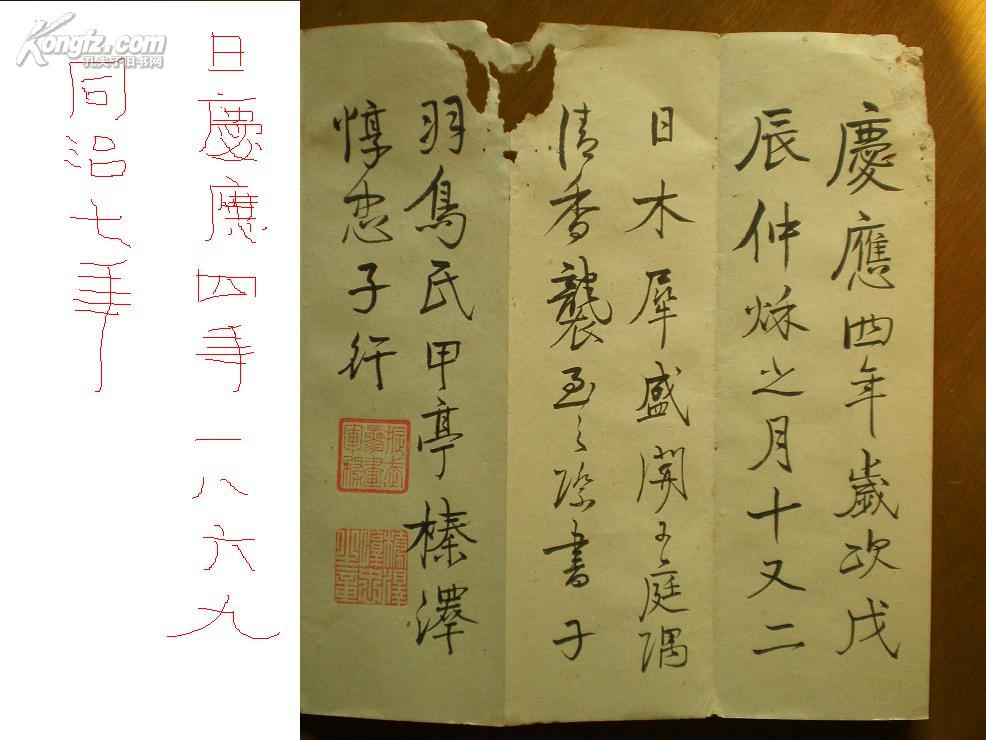 慶應四年歲次戊
辰仲烁之月十又二
日木犀盛開于庭隅
清香襲至之際書于
羽鳥氏甲亭榛澤
惇忠子行
日慶應四年一八六九
同治七年
Kongfz.com
孔夫子旧书网